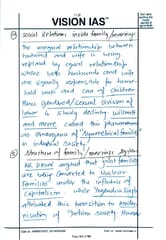 VISION IAS
Social Relations inside family/marriage
The marginal relationship between
husband and wife is being
replaced by equal relationship
where both husband and wife
are equally responsible for house-
hold work and care of children
Hence gendered/sexual division of
labor. A study during Willmott
and Young called this phenomenon
as emergence of "Symmetrical family
in industrial society"
Structure of family / marriage system
AR Desai argued that joint families
are being converted to Nuclear
families under the influence of
capitalism while Yogendra Singh
attributed this transition to Moder-
nisation of Indian society. Hence